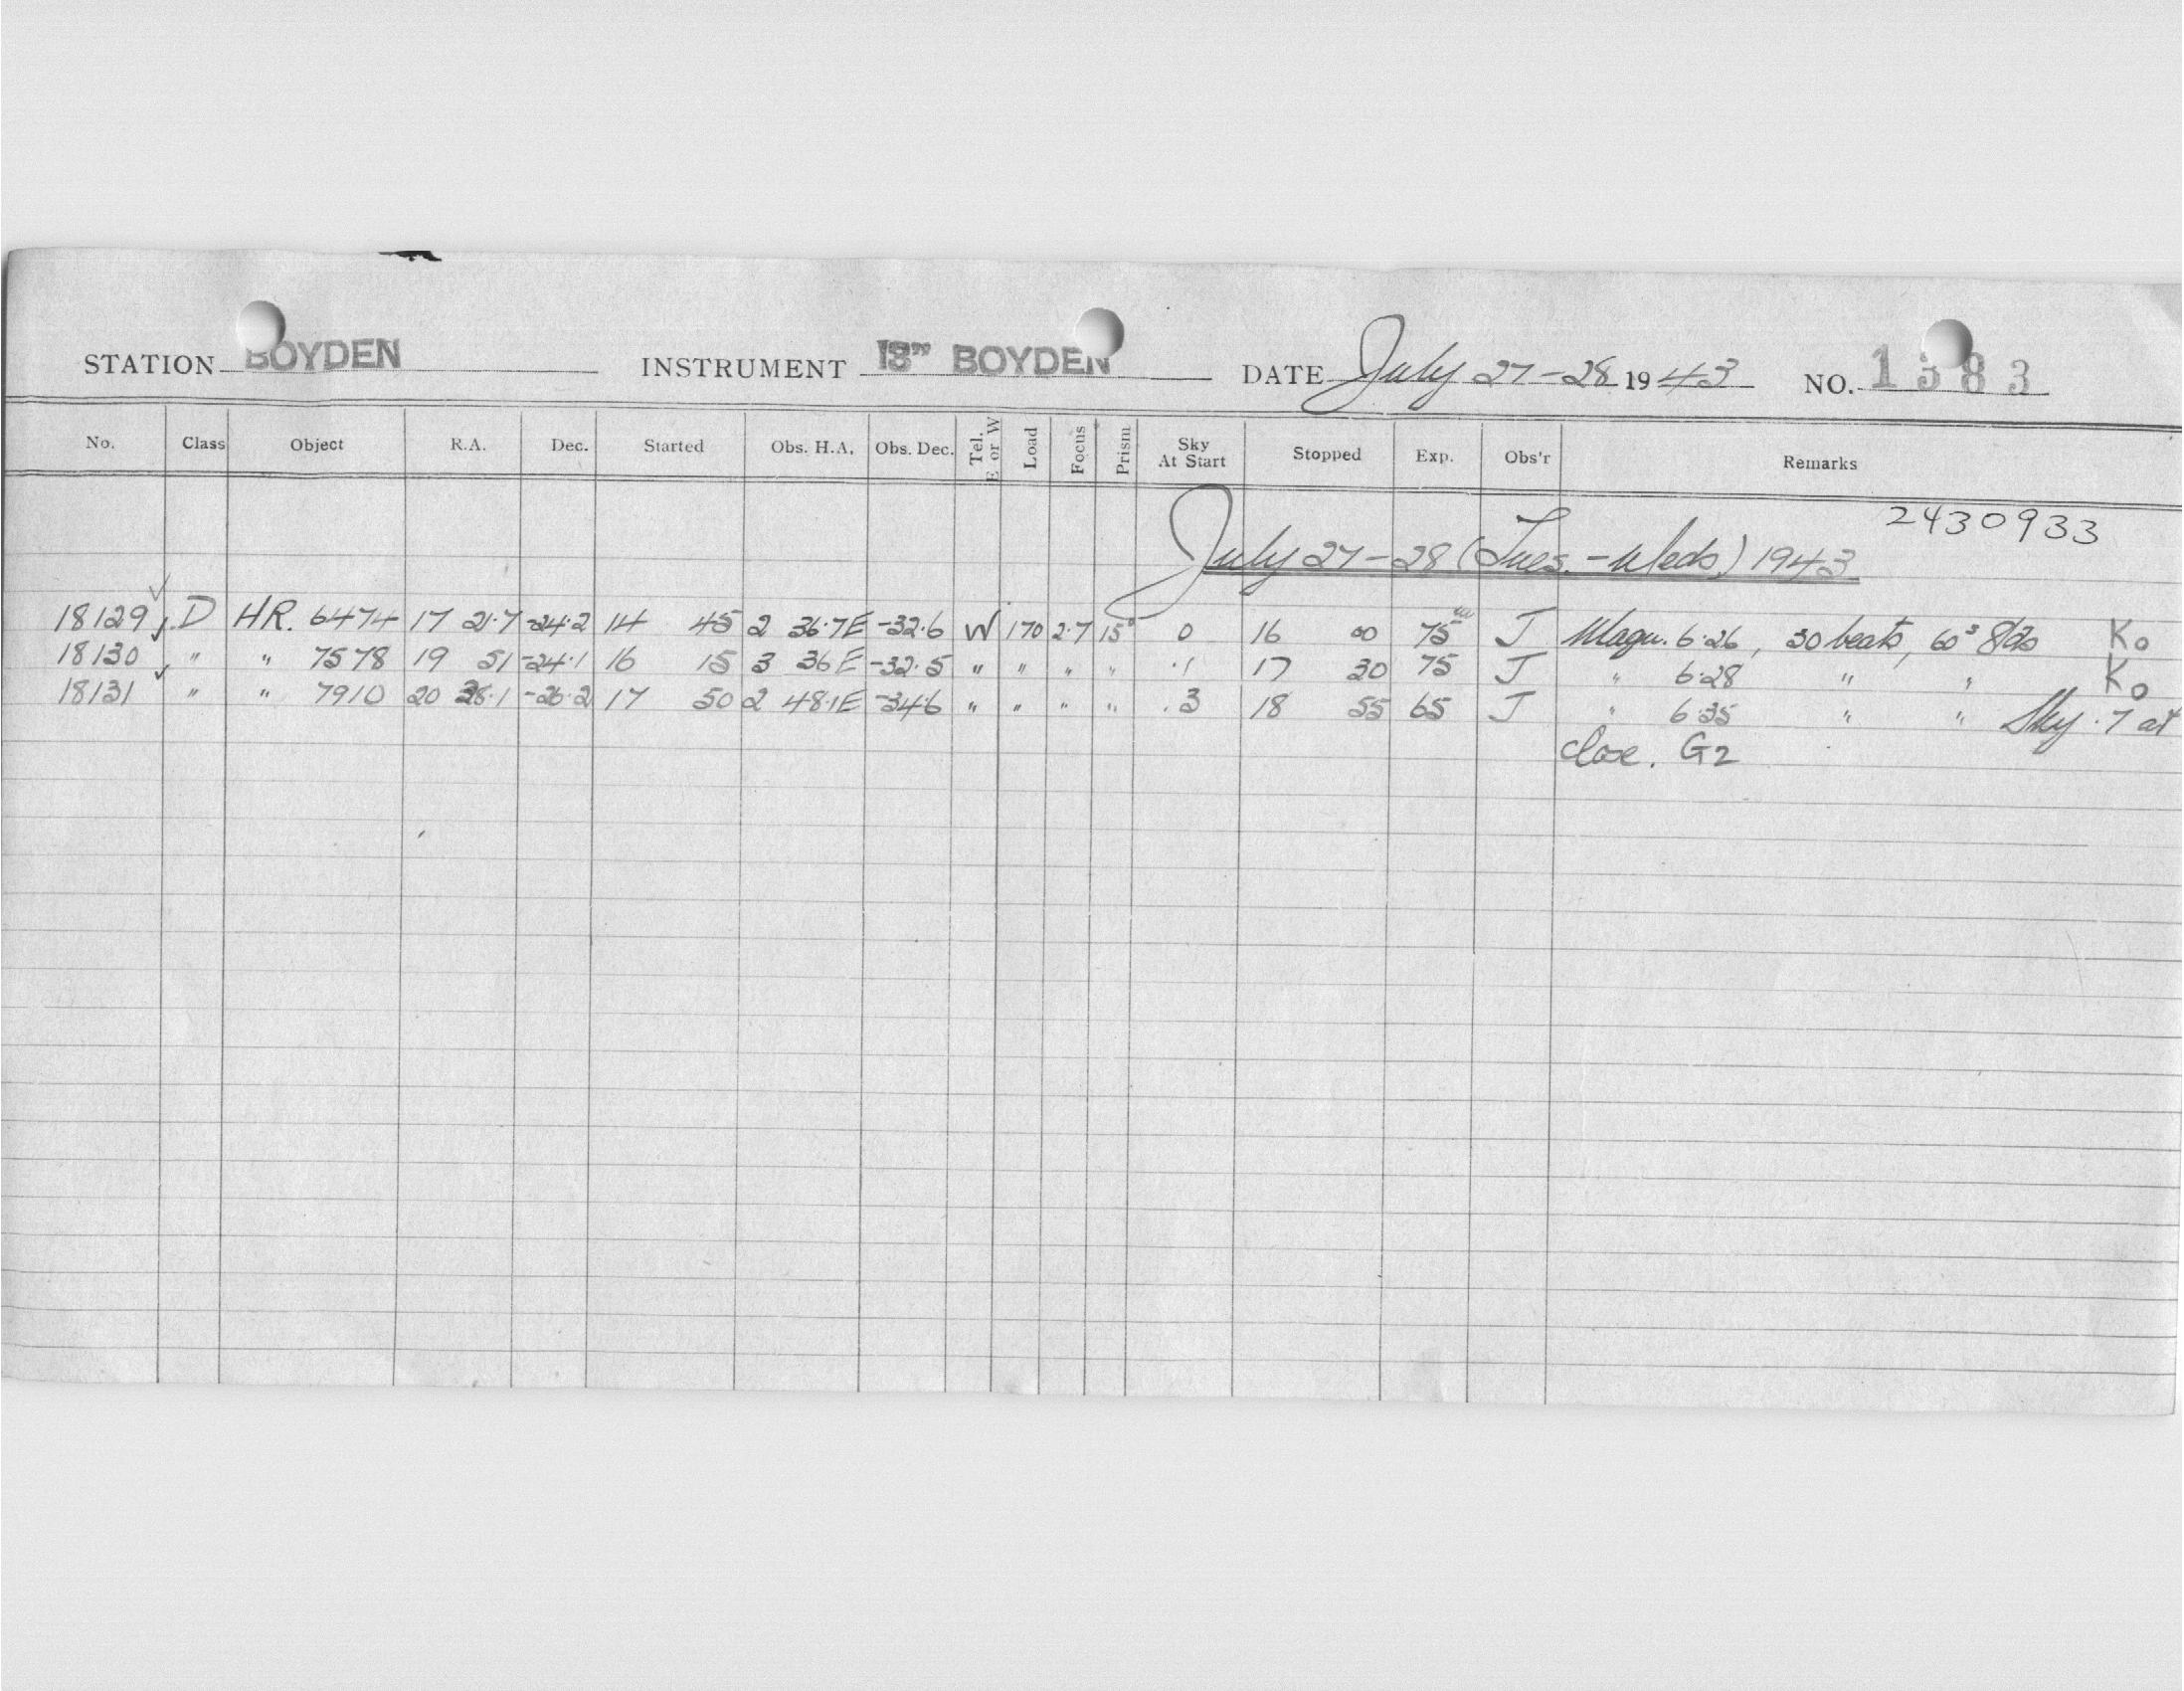 STATION BOYDEN INSTRUMENT 13" BOYDEN DATE July 27-28 1943 NO. 1383
No. Class Object R.A. Dec. Started Obs. H.A. Obs. Dec. Tel. E or W Load Focus Prism Sky At Start Stopped Exp. Obs'r Remarks
2430933
July 27-28 (Tues.-Weds) 1943
18129 D HR. 6474 17 21.7 -24.2 14 45 2 36.7E -32.6 W 170 2.7 15° 0 16 00 75m J Magn. 6.26, 30 beats, 60s K0
18130 " " 7578 19 51 -24.1 16 15 3 36E -32.5 " " " " .1 17 30 75 J " 6.28 " " K0
18131 " " 7910 20 38.1 -26.2 17 50 2 48.1E -34.6 " " " " .3 18 55 65 J " 6.35 " " Sky .7 at
close. G2